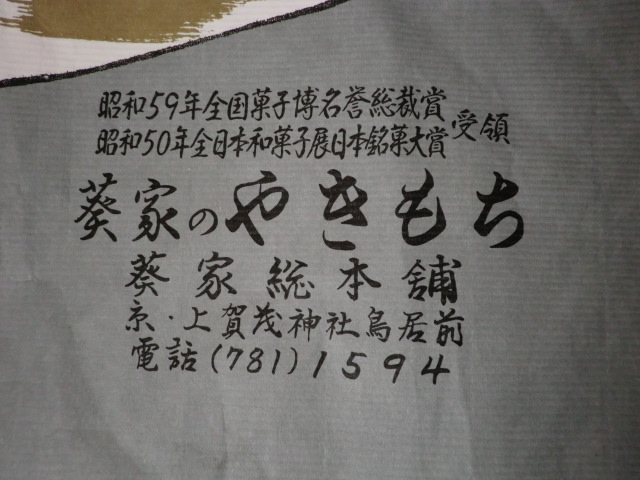 昭和59年全国菓子博名誉総裁賞
昭和50年全日本和菓子展日本銘菓大賞 受領
葵家のやきもち
葵家総本舗
京・上賀茂神社鳥居前
電話(781)1594